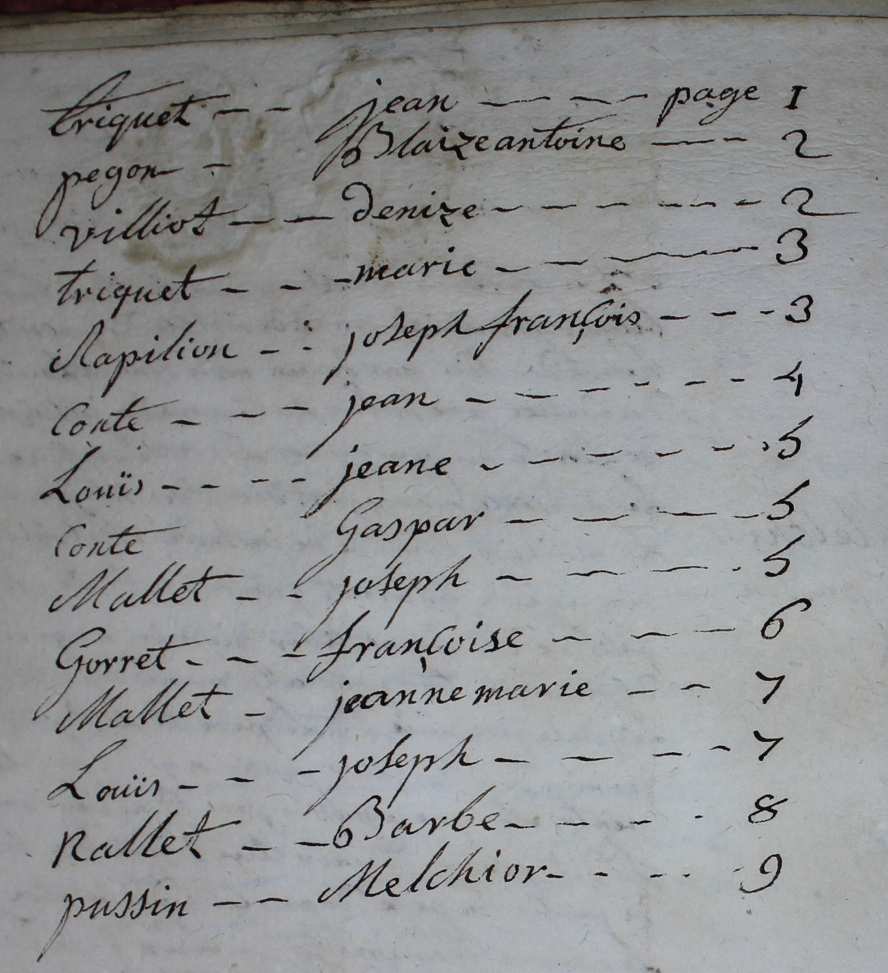 triquet - - jean - - - - page 1
pegon - Blaize antoine - - - 2
villiot - - denize - - - - - - - 2
triquet - - - marie - - - - - 3
Rapilion - - joseph françois - - - 3
Conte - - - jean - - - - - - - 4
Louïs - - - - jeane - - - - - - 5
Conte Gaspar - - - - 5
Mallet - - joseph - - - - 5
Gorret - - - françoise - - - 6
Mallet - jeanne marie - - 7
Louïs - - - joseph - - - - - 7
Rallet - - Barbe - - - - - 8
pussin - - Melchior - - - - - 9